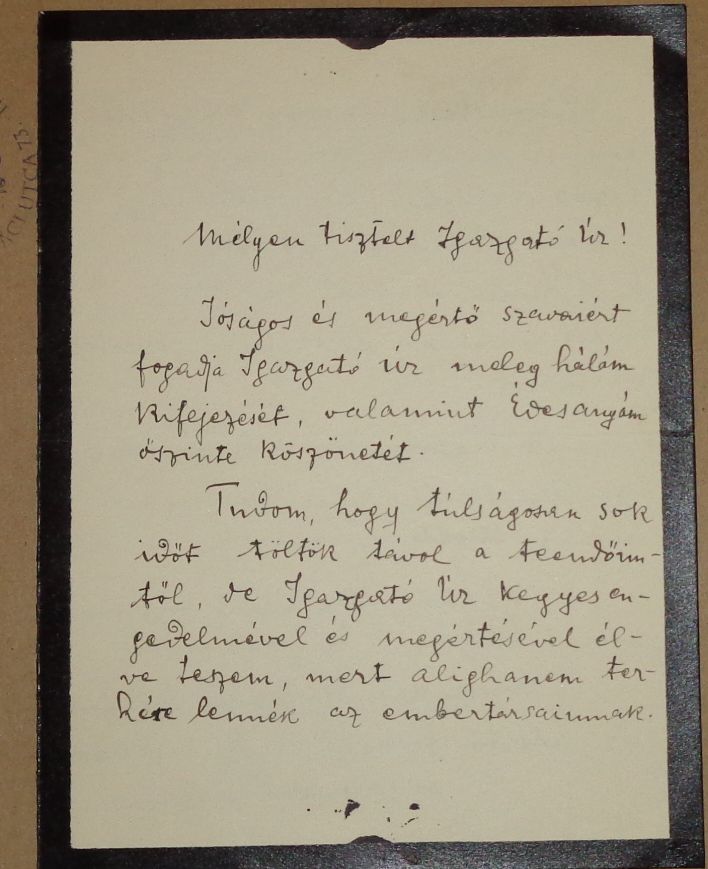 UTCA 13.
Mélyen tisztelt Igazgató Úr!
Jóságos és megértő szavaiért
fogadja Igazgató úr meleg hálám
kifejezését, valamint Édesanyám
őszinte köszönetét.
Tudom, hogy túlságosan sok
időt töltök távol a teendőim-
től, de Igazgató Úr kegyes en-
gedelmével és megértésével él-
ve teszem, mert alighanem ter-
hére lennék az embertársaimnak.